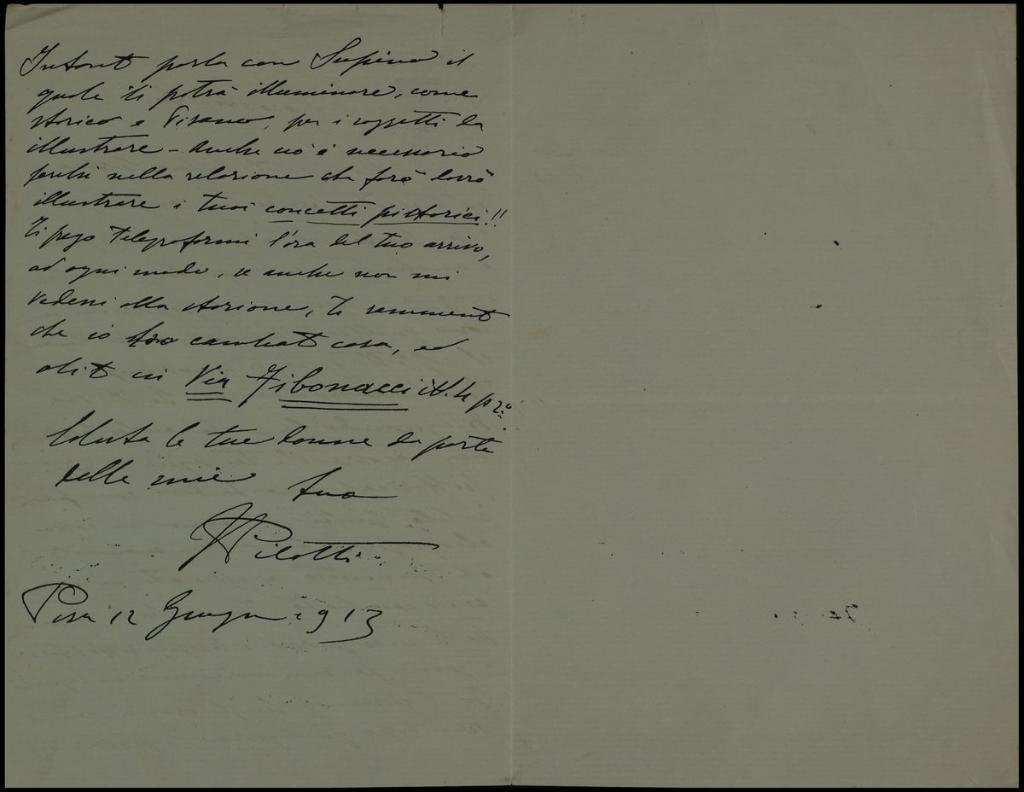 Intanto parla con Supino il
quale ti potrà illuminare, come
storico e Pisano, per i soggetti da
illustrare – Anche ciò è necessario
perchè nella relazione che farò dovrò
illustrare i tuoi concetti pittorici!!
Ti prego telegrafarmi l'ora del tuo arrivo,
ad ogni modo, se anche non mi
vedessi alla stazione, ti rammento
che io ho cambiato casa, ed
abito in Via Fibonacci N. 4 p 2º
Saluta le tue donne da parte
delle mie tuo
Pilotti
Pisa 12 Giugno 1913